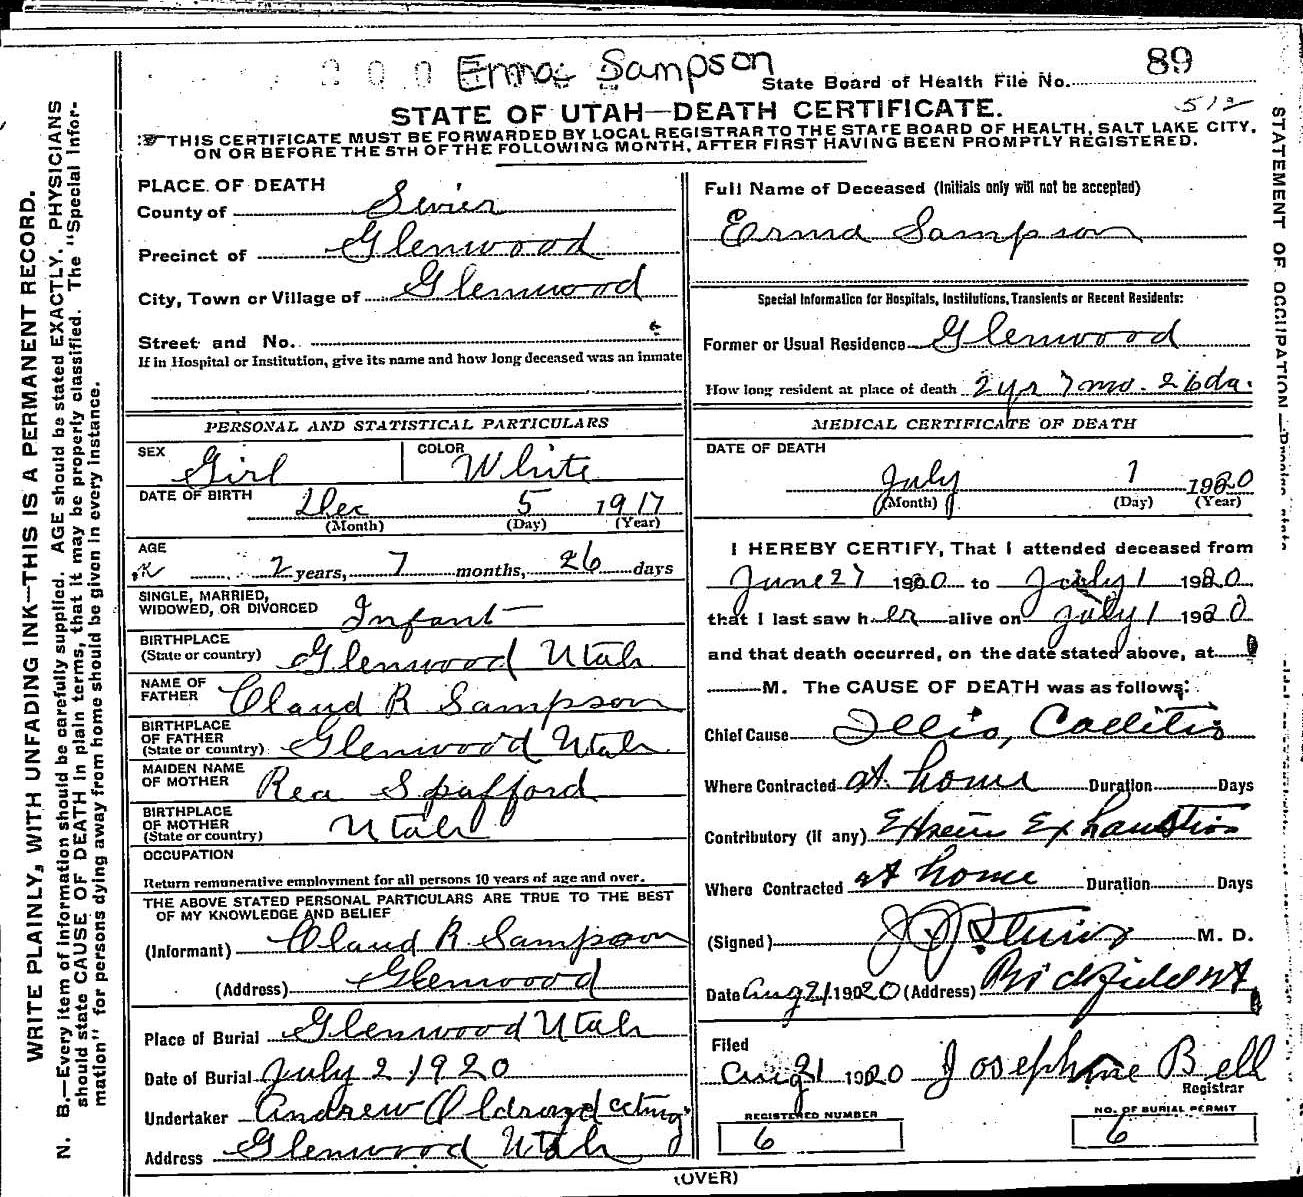 Erma Sampson
State Board of Health File No. 89
512
STATE OF UTAH—DEATH CERTIFICATE.
THIS CERTIFICATE MUST BE FORWARDED BY LOCAL REGISTRAR TO THE STATE BOARD OF HEALTH, SALT LAKE CITY,
ON OR BEFORE THE 5TH OF THE FOLLOWING MONTH, AFTER FIRST HAVING BEEN PROMPTLY REGISTERED.
PLACE OF DEATH
County of Sevier
Precinct of Glenwood
City, Town or Village of Glenwood
Street and No.
If in Hospital or Institution, give its name and how long deceased was an inmate
Full Name of Deceased (Initials only will not be accepted)
Erma Sampson
Special Information for Hospitals, Institutions, Transients or Recent Residents:
Former or Usual Residence Glenwood
How long resident at place of death 2 yr 7 mo. 26 da.
PERSONAL AND STATISTICAL PARTICULARS
SEX Girl COLOR White
DATE OF BIRTH Dec 5 1917
(Month) (Day) (Year)
AGE
2 years, 7 months, 26 days
SINGLE, MARRIED,
WIDOWED, OR DIVORCED Infant
BIRTHPLACE
(State or country) Glenwood Utah
NAME OF
FATHER Claud R Sampson
BIRTHPLACE
OF FATHER
(State or country) Glenwood Utah
MAIDEN NAME
OF MOTHER Rea Spafford
BIRTHPLACE
OF MOTHER
(State or country) Utah
OCCUPATION
Return remunerative employment for all persons 10 years of age and over.
THE ABOVE STATED PERSONAL PARTICULARS ARE TRUE TO THE BEST
OF MY KNOWLEDGE AND BELIEF
(Informant) Claud R Sampson
(Address) Glenwood
Place of Burial Glenwood Utah
Date of Burial July 2 1920
Undertaker Andrew Oldroyd acting
Address Glenwood Utah
MEDICAL CERTIFICATE OF DEATH
DATE OF DEATH
July 1 1920
(Month) (Day) (Year)
I HEREBY CERTIFY, That I attended deceased from
June 27 1920 to July 1 1920
that I last saw her alive on July 1 1920
and that death occurred, on the date stated above, at
M. The CAUSE OF DEATH was as follows:
Chief Cause Illio, Collitis
Where Contracted at home Duration Days
Contributory (if any) Extreme Exhaustion
Where Contracted at home Duration Days
(Signed) M. D.
Date Aug 21 1920 (Address) Richfield Ut
Filed
Aug 21 1920 Josephine Bell
Registrar
REGISTERED NUMBER
6
NO. OF BURIAL PERMIT
6
(OVER)
WRITE PLAINLY, WITH UNFADING INK—THIS IS A PERMANENT RECORD.
N. B.—Every item of information should be carefully supplied. AGE should be stated EXACTLY. PHYSICIANS
should state CAUSE OF DEATH in plain terms, that it may be properly classified. The "Special Infor-
mation" for persons dying away from home should be given in every instance.
STATEMENT OF OCCUPATION